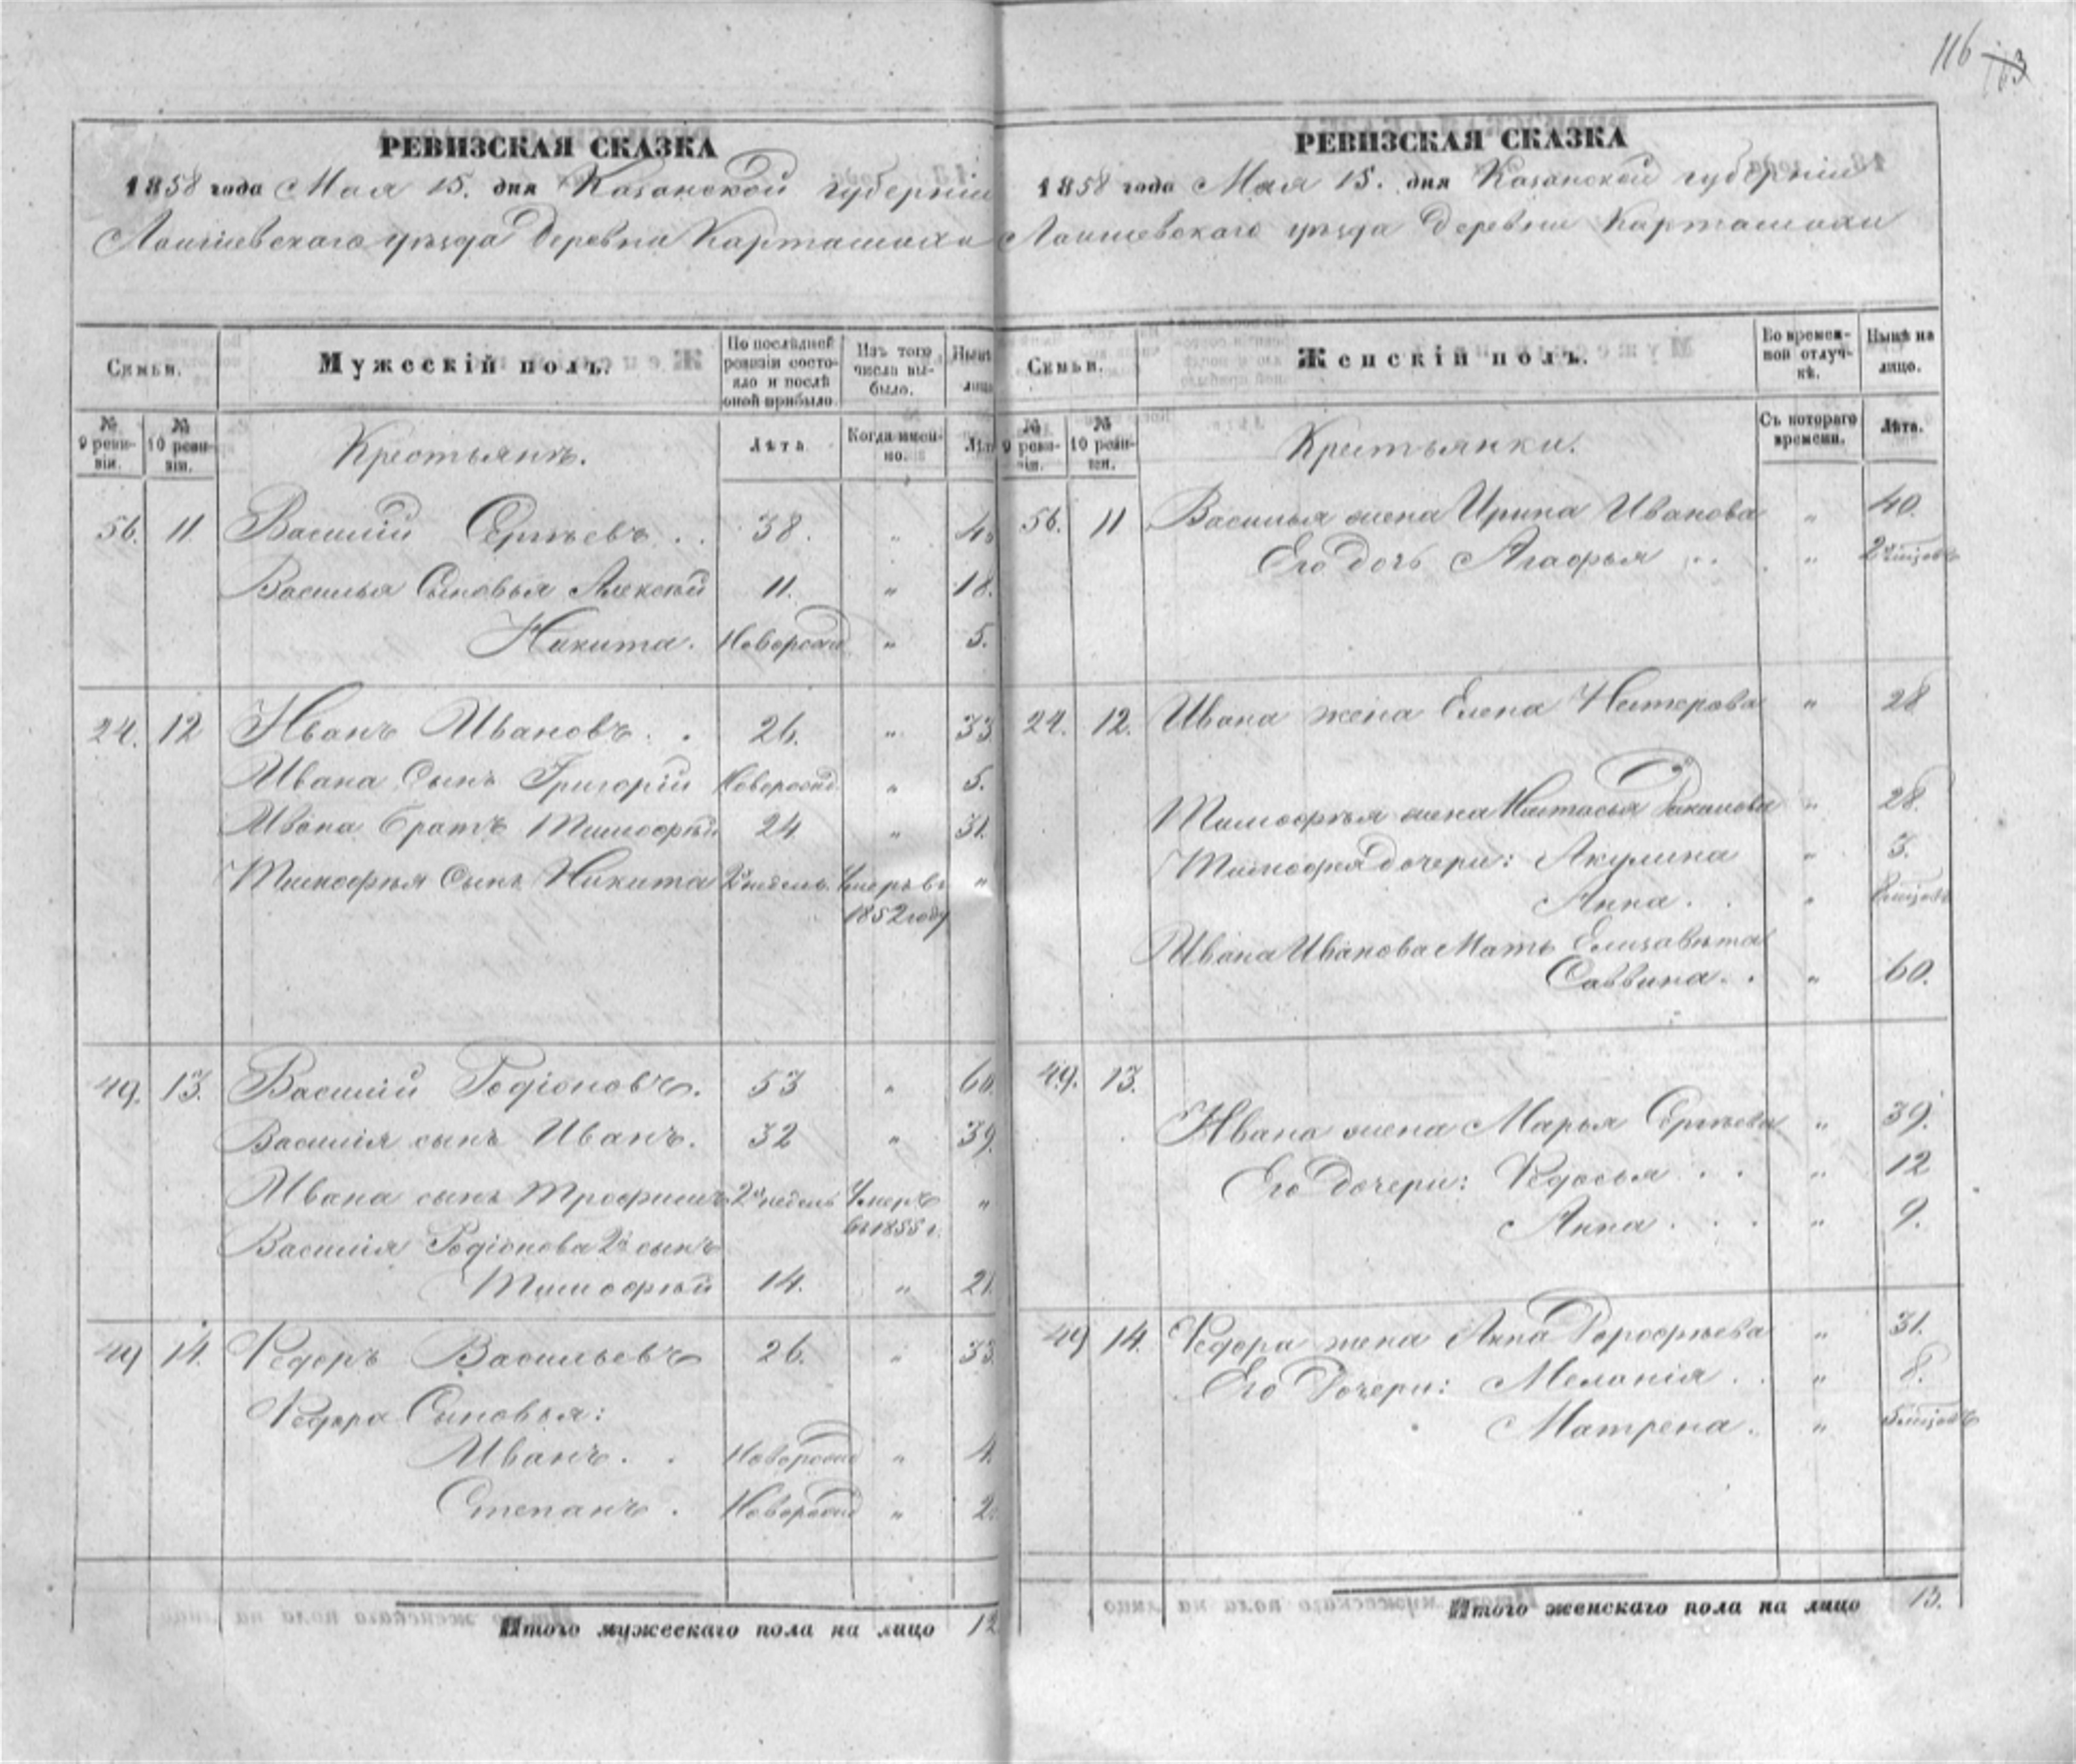 116 163
РЕВИЗСКАЯ СКАЗКА
1858 года Мая 15. дня Казанской губерніи
Лаишевскаго уѣзда Деревни Карташихи
Семьи.
Мужескій полъ.
По послѣдней ревизіи состояло и послѣ оной прибыло.
Изъ того числа выбыло.
Нынѣ лицо
№ 9 ревизіи.
№ 10 ревизіи.
Крестьянъ.
Лѣта
Когда именно.
Лѣт
56. 11 Василій Сергѣевъ . . 38. "
Василья Сыновья Алексѣй 11. " 18.
Никита. Новорожд " 5.
24. 12 Иванъ Ивановъ . . 26. " 33
Ивана Сынъ Григорій Новорожд. " 5.
Ивана братъ Тимофѣй 24 " 31.
Тимофѣя Сынъ Никита 2 недѣль. Умеръ въ "
1852 году
49. 13. Василій Родіоновъ. 53 " 60
Василія сынъ Иванъ. 32 " 39.
Ивана сынъ Трофимъ 2 недѣль Умеръ "
въ 1855 г.
Василія Родіонова 2й сынъ
Тимофѣй 14. " 21.
49 14. Ѳедоръ Васильевъ 26. " 33.
Ѳедора Сыновья:
Иванъ . . Новорожд " 4.
Степанъ . Новорожд " 2.
Итого мужескаго пола на лицо 12
РЕВИЗСКАЯ СКАЗКА
1858 года Мая 15. дня Казанской губерніи
Лаишевскаго уѣзда Деревни Карташихи
Семьи.
Женскій полъ.
Во временной отлучкѣ.
Нынѣ на лицо.
№ 9 ревизіи.
№ 10 ревизіи.
Крестьянки.
Съ котораго времени.
Лѣта.
56. 11 Василья жена Ирина Иванова " 40.
Его дочь Агафья . . " 2 мѣсцовъ
24. 12. Ивана жена Елена Нестерова " 28
Тимофѣя жена Настасья " 28.
Тимофѣя дочери: Акулина " 3.
Анна . . " мѣсцовъ
Ивана Иванова Мать Елизавѣта
Саввина . . " 60.
49. 13.
Ивана жена Марья Сергѣева " 39.
Его дочери: Ѳедосья . . " 12
Анна . . . " 9.
49 14. Ѳедора жена Анна Дорофѣева " 31.
Его Дочери: Меланія . . " 8.
Матрена . " мѣсцовъ
Итого женскаго пола на лицо 13.